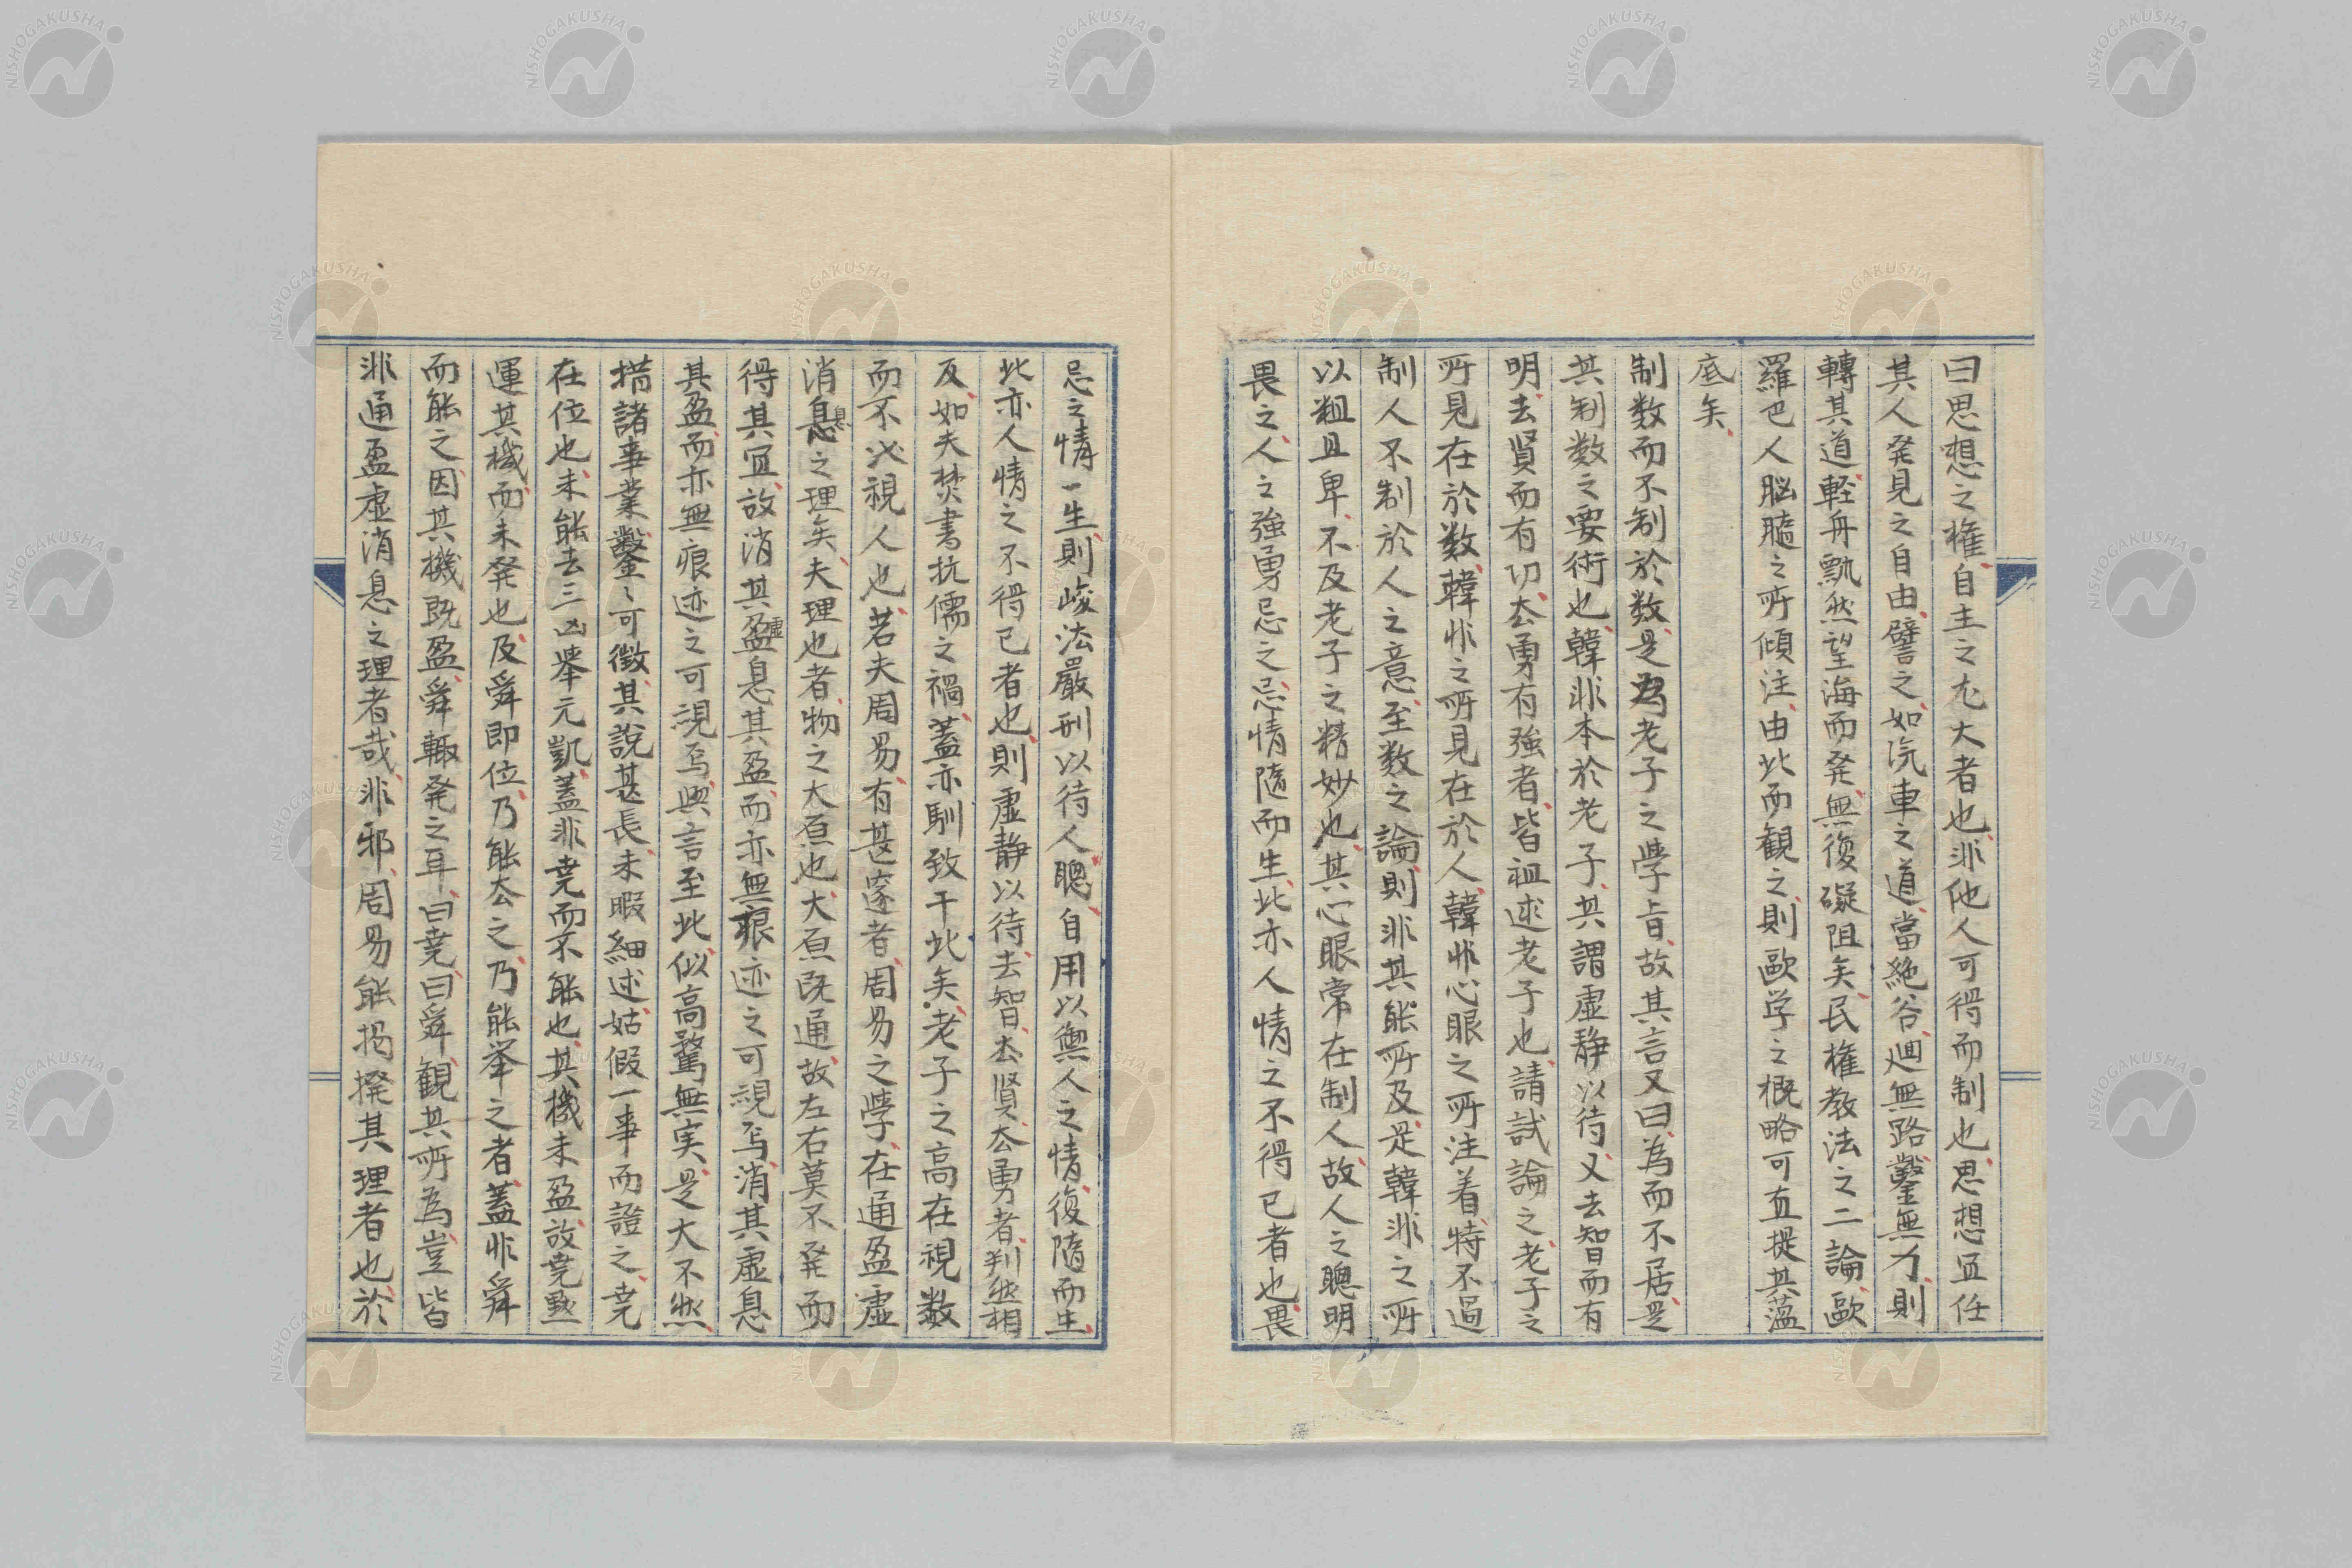 曰思想之権自主之尤大者也非他人可得而制也思想宜任
其人発見之自由譬之如汽車之道當絶谷廻無路鑿無力則
轉其道軽舟飄然望海而発無復礙阻矣民権教法之二論歐
羅巴人脳髓之所傾注由此而観之則歐学之概略可直提其薀
底矣
制数而不制於数是為老子之學旨故其言又曰為而不居是
其制数之要術也韓非本於老子其謂虚静以待又去智而有
明去賢而有功去勇有強者皆祖述老子也請試論之老子之
所見在於数韓非之所見在於人韓非心眼之所注着特不過
制人不制於人之意至数之論則非其能所及是韓非之所
以粗且卑不及老子之精妙也其心眼常在制人故人之聰明
畏之人之強勇忌之忌情隨而生此亦人情之不得已者也畏
忌之情一生則峻法嚴刑以待人聰自用以禦人之情復隨而生
此亦人情之不得已者也則虚静以待去智去賢去勇者判然相
反如夫焚書抗儒之禍蓋亦馴致于此矣老子之高在視数
而不必視人也若夫周易有甚邃者周易之學在通盈虚
消息之理矣夫理也者物之大原也大原既通故左右莫不発而
得其宜故消其盈虚息其盈而亦無痕迹之可視焉消其虚息
其盈而亦無痕迹之可視焉與言至此似高騖無実是大不然
措諸事業鑿々可徴其説甚長未暇細述姑假一事而證之堯
在位也未能去三凶挙元凱蓋非堯而不能也其機未盈故堯黙
運其機而未発也及舜即位乃能去之乃能挙之者蓋非舜
而能之因其機既盈舜輙発之耳曰堯曰舜観其所為豈皆
非通盈虚消息之理者哉非邪周易能揭揆其理者也於
NISHOGAKUSHA